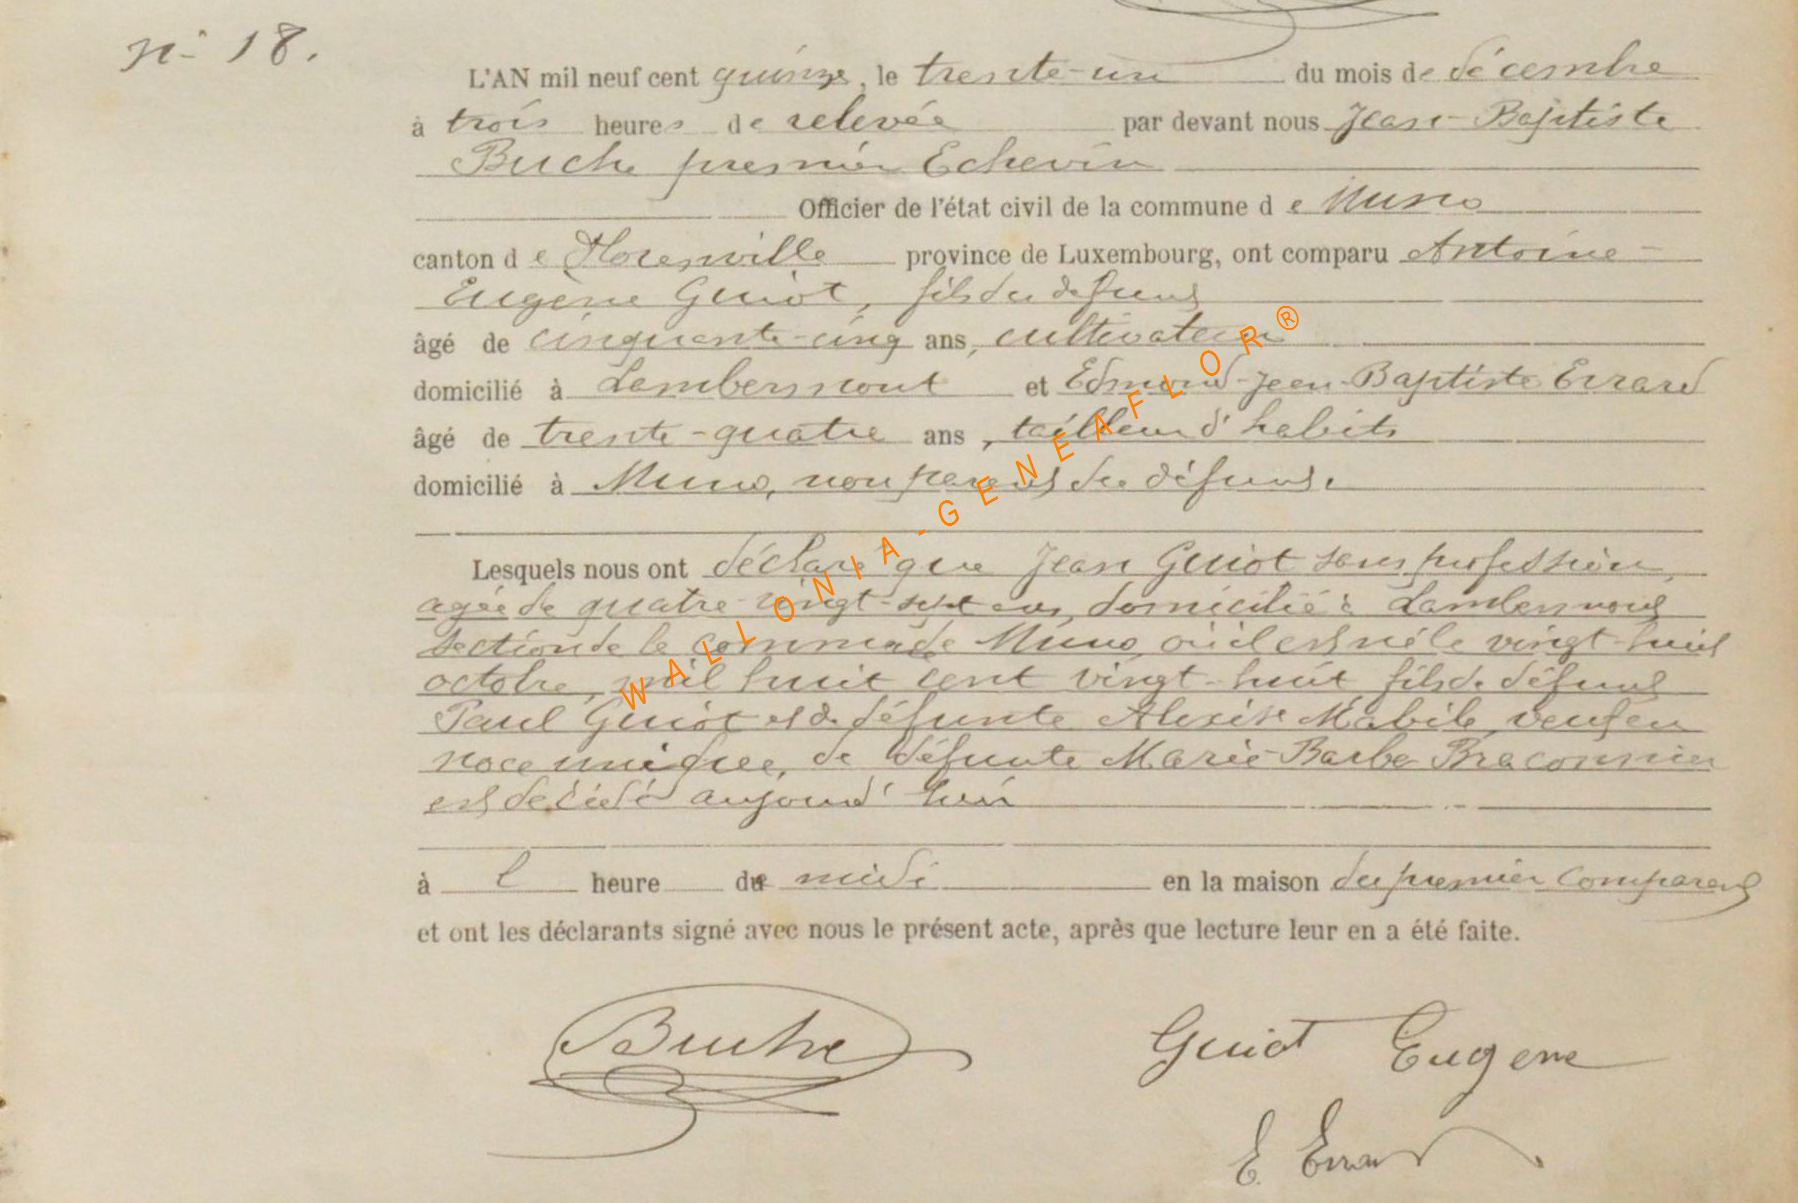 n° 18.
L'AN mil neuf cent quinze, le trente-un du mois de décembre
à trois heures de relevée par devant nous Jean-Baptiste
Buche premier Echevin
Officier de l'état civil de la commune de Muno
canton de Florenville province de Luxembourg, ont comparu Antoine-
Eugène Guiot, fils du défunt
âgé de cinquante-cinq ans, cultivateur
domicilié à Lambermont et Edmond-Jean-Baptiste Errard
âgé de trente-quatre ans, tailleur d'habits
domicilié à Muno, non parent du défunt.
Lesquels nous ont déclaré que Jean Guiot sans profession,
agée de quatre-vingt-sept ans, domicilié à Lambermont
section de la commune de Muno, où il est né le vingt-huit
octobre, mil huit cent vingt-huit fils de défunt
Paul Guiot et de défunte Alexise Mabile, veuf en
noce unique, de défunte Marie-Barbe Braconnier
est décédé aujourd'hui
à l heure du midi en la maison du premier comparant
et ont les déclarants signé avec nous le présent acte, après que lecture leur en a été faite.
Buche Guiot Eugene
E. Errard
WALLONIA-GENEAFLOR®